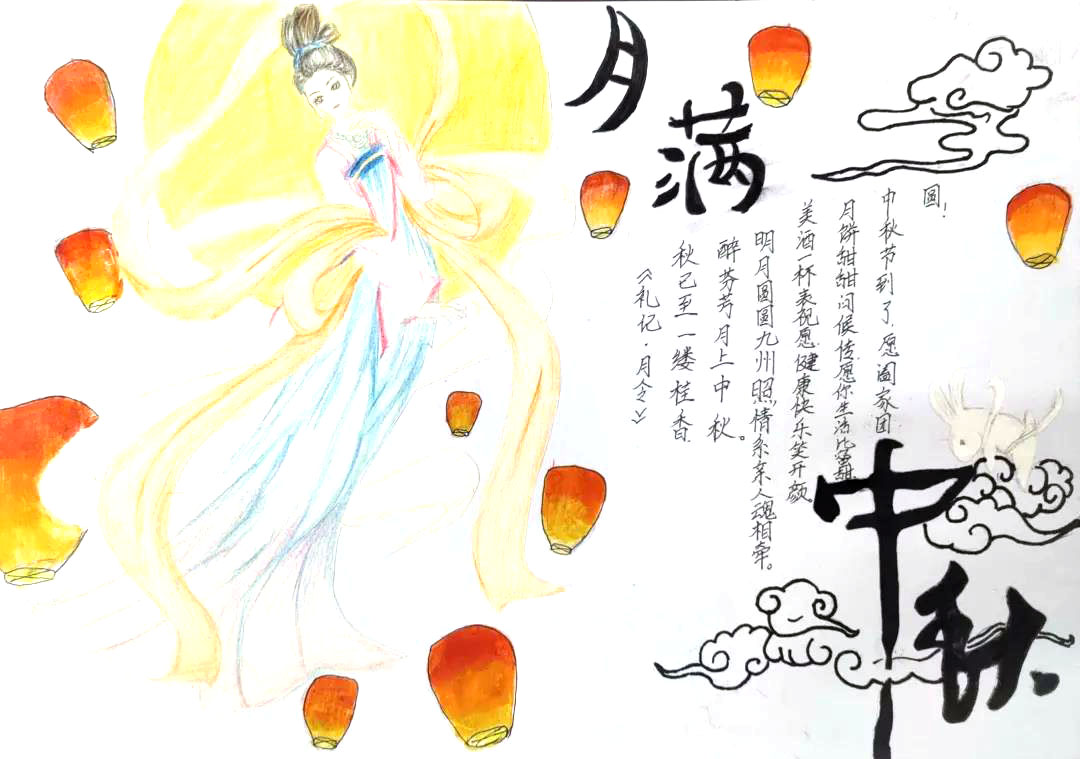 月满
中秋
《礼记·月令》
秋已至一缕桂香
醉芬芳月上中秋。
明月圆圆九州照,情系亲人魂相牵。
美酒一杯表祝愿,健康快乐笑开颜。
月饼甜甜问候传,愿你生活比蜜甜
中秋节到了,愿阖家团
圆!